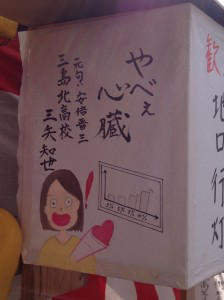 やべぇ
心臓
元句・安倍晋三
三島北高校
三矢知世
歓
地口行灯